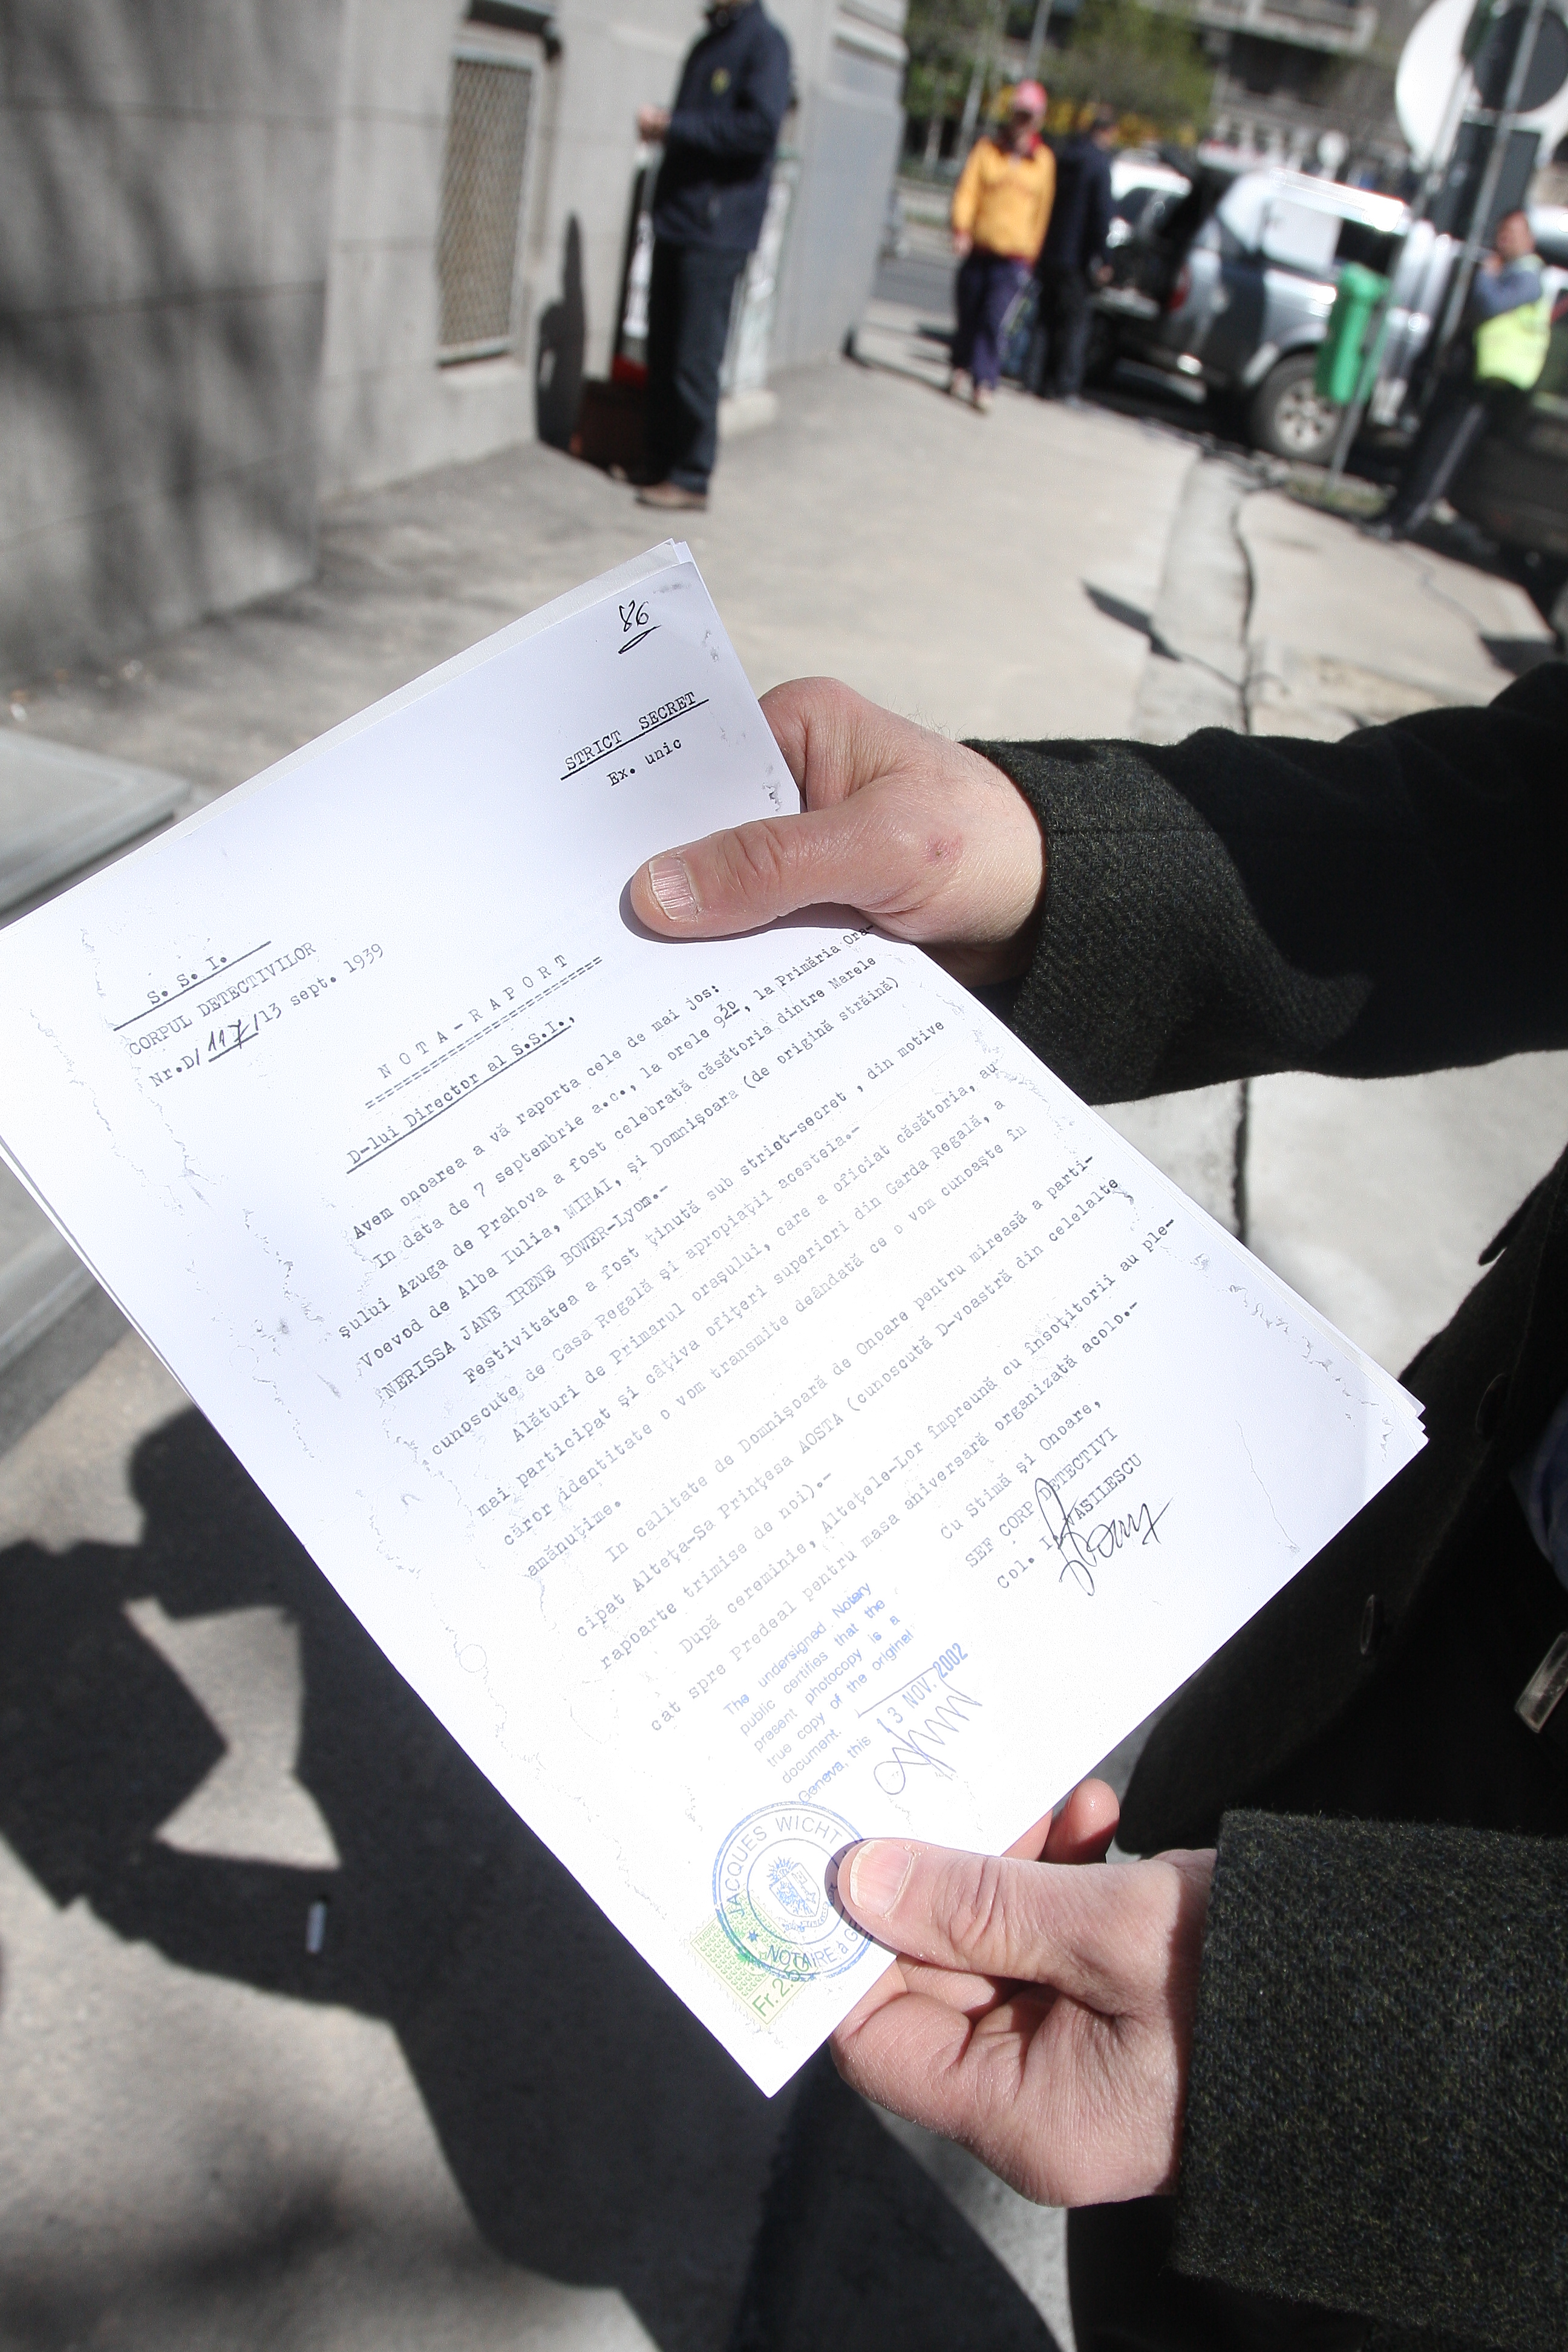 86
STRICT SECRET
Ex. unic
S. S. I.
CORPUL DETECTIVILOR
Nr.D/117/13 sept. 1939
N O T A - R A P O R T
D-lui Director al S.S.I.,
Avem onoarea a vă raporta cele de mai jos:
In data de 7 septembrie a.c., la orele 9³⁰, la Primăria Ora-
şului Azuga de Prahova a fost celebrată căsătoria dintre Marele
Voevod de Alba Iulia, MIHAI, şi Domnişoara (de origină străină)
NERISSA JANE IRENE BOWER-Lyom.-
Festivitatea a fost ţinută sub strict-secret , din motive
cunoscute de Casa Regală şi apropiaţii acesteia.-
Alături de Primarul oraşului, care a oficiat căsătoria, au
mai participat şi câţiva ofiţeri superiori din Garda Regală, a
căror identitate o vom transmite deândată ce o vom cunoaşte în
amănuţime.
In calitate de Domnişoară de Onoare pentru mireasă a parti-
cipat Alteţa-Sa Prinţesa AOSTA (cunoscută D-voastră din celelalte
rapoarte trimise de noi).-
După cereminie, Alteţele-Lor împreună cu însoţitorii au ple-
cat spre Predeal pentru masa aniversară organizată acolo.-
Cu Stimă şi Onoare,
SEF CORP DETECTIVI
Col. I. VASILESCU
The undersigned Notary
public certifies that the
present photocopy is a
true copy of the original
document.
Geneva, this 13 NOV. 2002
JACQUES WICHT
NOTAIRE à
Fr. 2.50